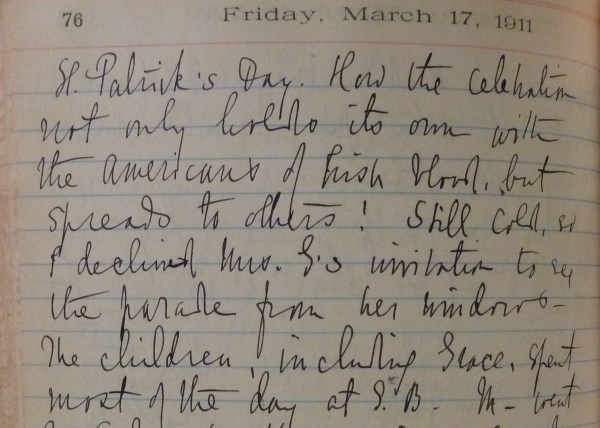 76 Friday, March 17, 1911
St. Patrick's Day. How the celebration
not only holds its own with
the Americans of Irish blood, but
spreads to others! Still cold, so
I declined Mrs. G.'s invitation to see
the parade from her windows—
The children, including Grace, spent
most of the day at S. B. M— went